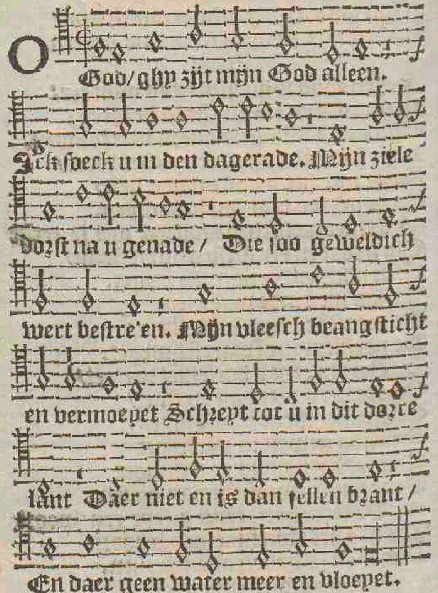 O
God/ghy zijt mijn God alleen.
Ick soeck u in den dagerade. Mijn ziele
dorst na u genade / Die soo geweldich
wert bestre'en. Mijn vleesch beangsticht
en vermoeyet Schreyt tot u in dit dorre
lant Daer niet en is dan fellen brant /
En daer geen water meer en vloeyet.